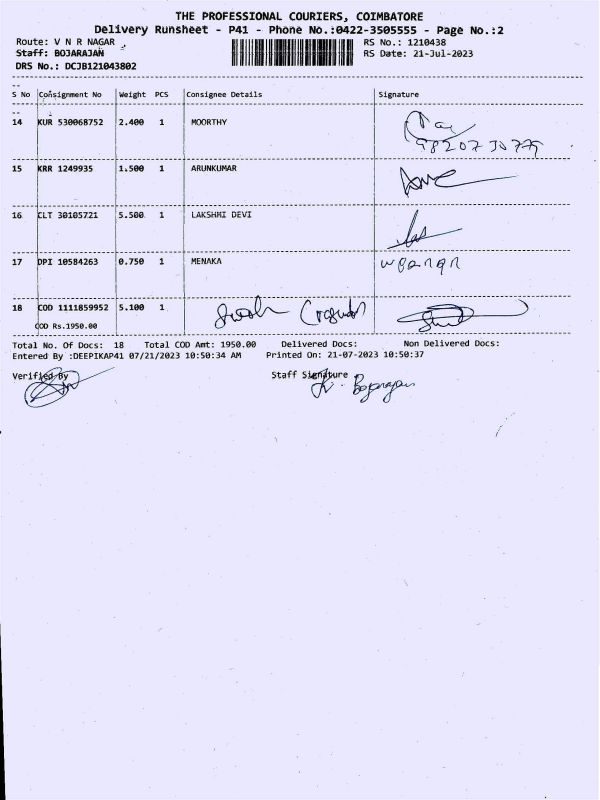 THE PROFESSIONAL COURIERS, COIMBATORE
Delivery Runsheet - P41 - Phone No.:0422-3505555 - Page No.:2
Route: V N R NAGAR
RS No.: 1210438
Staff: BOJARAJAN
RS Date: 21-Jul-2023
DRS No.: DCJB121043802
S No Consignment No Weight PCS Consignee Details Signature
14 KUR 530068752 2.400 1 MOORTHY
15 KRR 1249935 1.500 1 ARUNKUMAR
16 CLT 30105721 5.500 1 LAKSHMI DEVI
17 DPI 10584263 0.750 1 MENAKA
18 COD 1111859952 5.100 1
COD Rs.1950.00
Total No. Of Docs: 18 Total COD Amt: 1950.00 Delivered Docs: Non Delivered Docs:
Entered By :DEEPIKAP41 07/21/2023 10:50:34 AM Printed On: 21-07-2023 10:50:37
Verified By Staff Signature